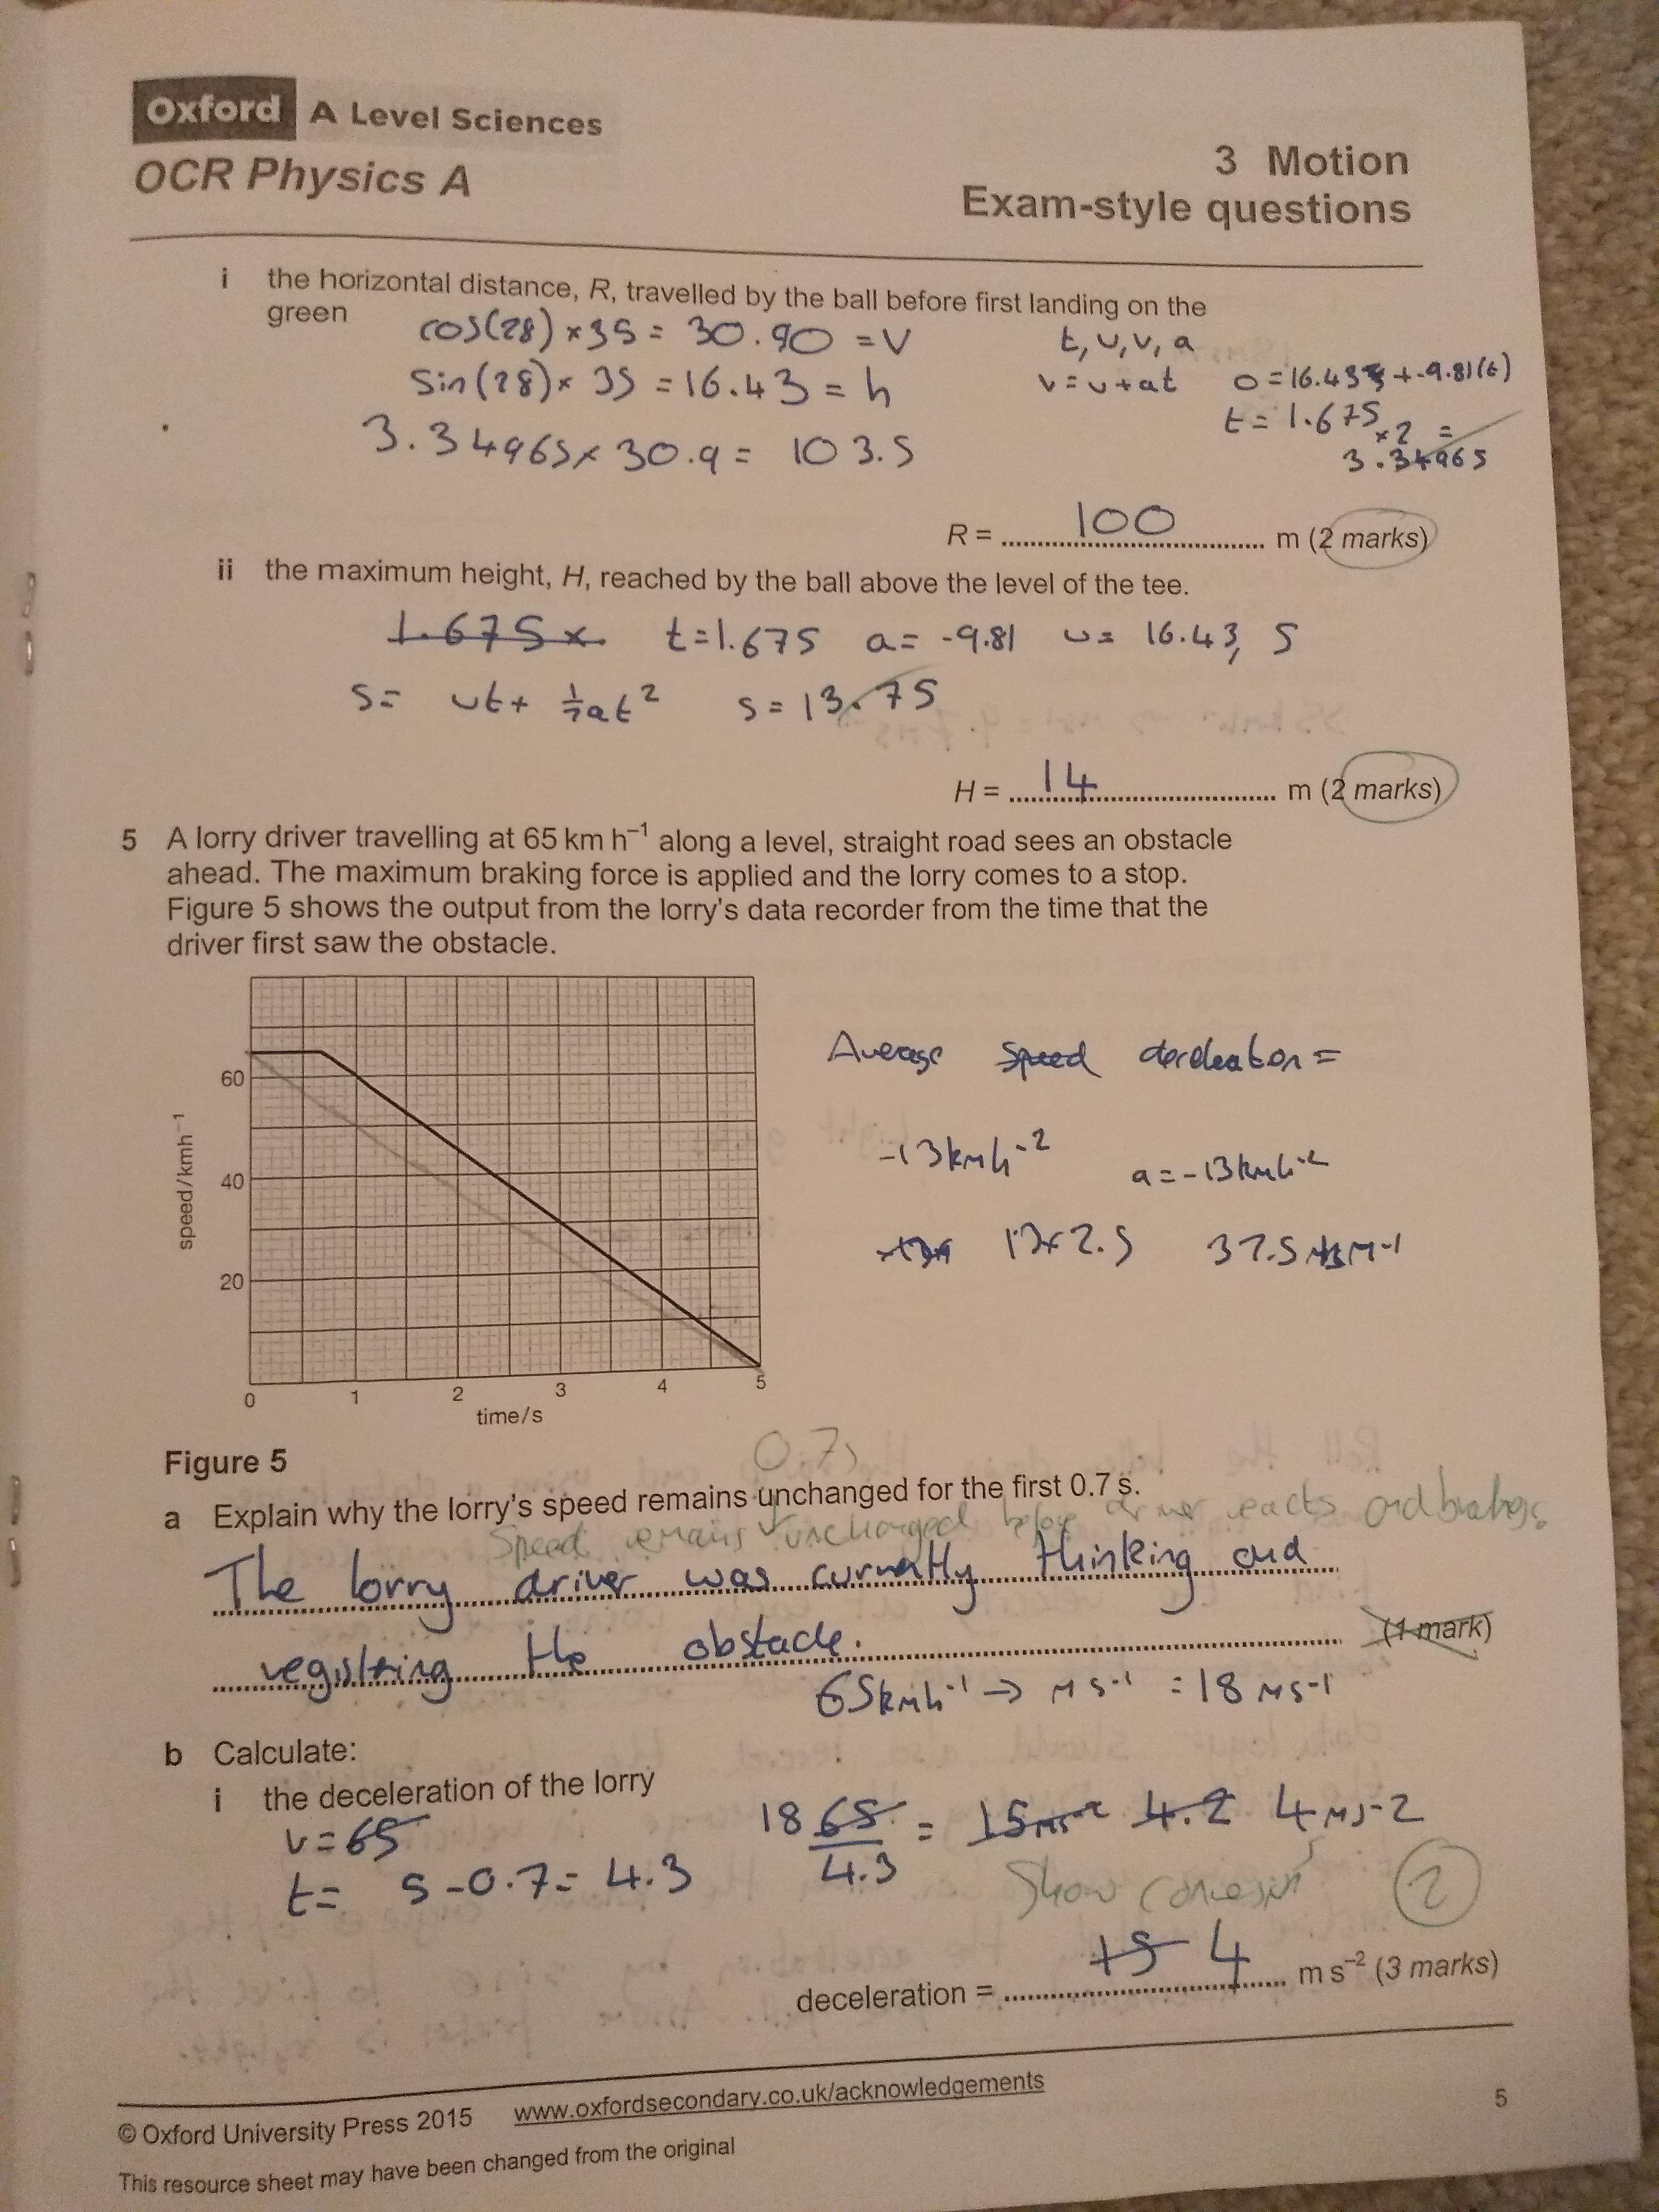 Oxford A Level Sciences
OCR Physics A
3 Motion
Exam-style questions
i the horizontal distance, R, travelled by the ball before first landing on the
green
cos(28) × 35 = 30.90 = V
t, u, v, a
sin(28) × 35 = 16.43 = h
v = u + at
0 = 16.43 + -9.81(t)
t = 1.675
×2 =
3.34965
3.34965 × 30.9 = 103.5
R = 100 m (2 marks)
ii the maximum height, H, reached by the ball above the level of the tee.
1.675 × t = 1.675 a = -9.81 u = 16.43, S
S = ut + ½at² S = 13.75
H = 14 m (2 marks)
5 A lorry driver travelling at 65 km h⁻¹ along a level, straight road sees an obstacle
ahead. The maximum braking force is applied and the lorry comes to a stop.
Figure 5 shows the output from the lorry's data recorder from the time that the
driver first saw the obstacle.
speed/kmh⁻¹
60
40
20
0 1 2 3 4 5
time/s
Average speed
-13kmh⁻²
a = -13kmh⁻²
13×2.5 37.5
Figure 5
0.7s
a Explain why the lorry's speed remains unchanged for the first 0.7 s.
Speed remains unchanged before driver reacts and brakes.
The lorry driver was currnatly thinking and
registring the obstacle.
(1 mark)
65kmh⁻¹ → ms⁻¹ = 18 ms⁻¹
b Calculate:
i the deceleration of the lorry
v = 65
t = 5 - 0.7 = 4.3
18 65 / 4.3 = 15ms⁻² 4.2 4ms⁻²
Show
2
deceleration = 15 4 m s⁻² (3 marks)
© Oxford University Press 2015 www.oxfordsecondary.co.uk/acknowledgements
This resource sheet may have been changed from the original
5